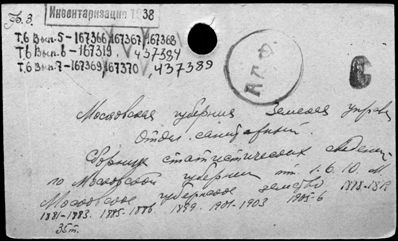 Гб. 3.
Инвентаризация 1938
Т.6 Вып.5-167366, 167367, 167368
Т.6 Вып.6-167319. 437384
Т.6 Вып.7-167369, 167370, 437389
Московская губерния Земская управа
Отдел. санитарный.
Сборник статистических сведений
по Московской губернии тт. 1. 6. 10. М
Московское губернское земство 1878-1879
1881-1883. 1885-1886. 1899. 1901-1903 1905-6
35т.